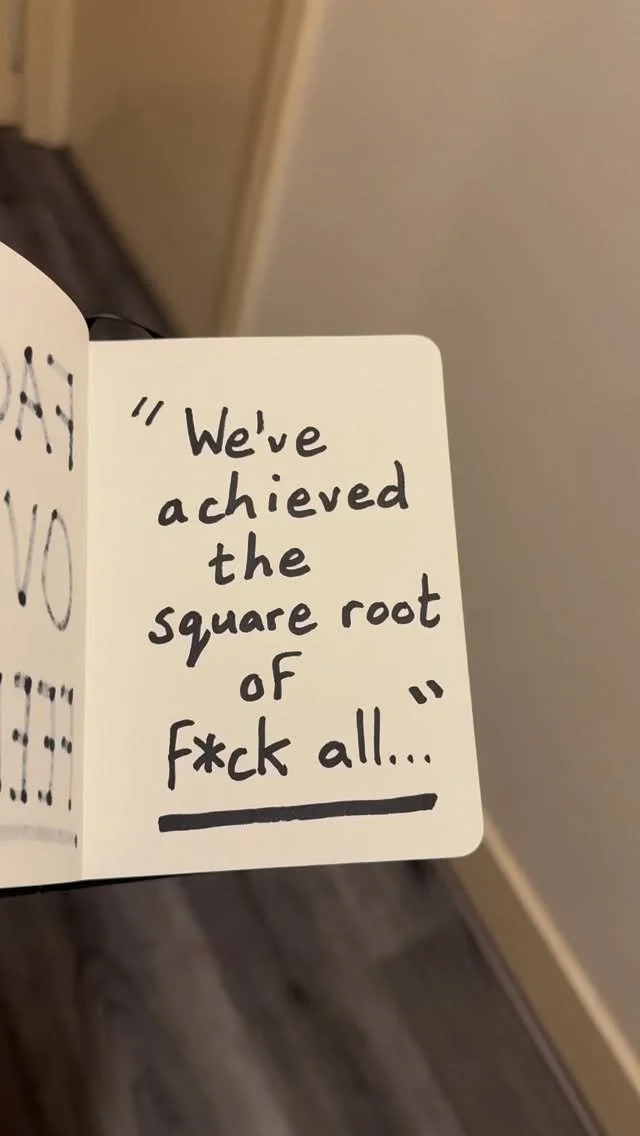 "We've
achieved
the
square root
of
F*ck all..."